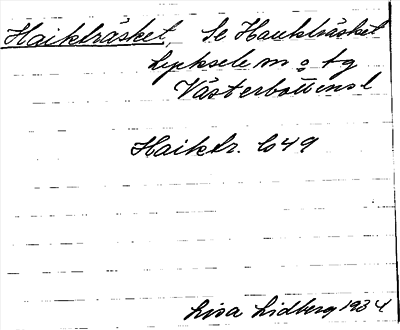 Haikträsket, Se Haukträsket
Lycksele m o tg
Västerbottensl
Haiktr. Co 49
Lisa Lidberg 1934